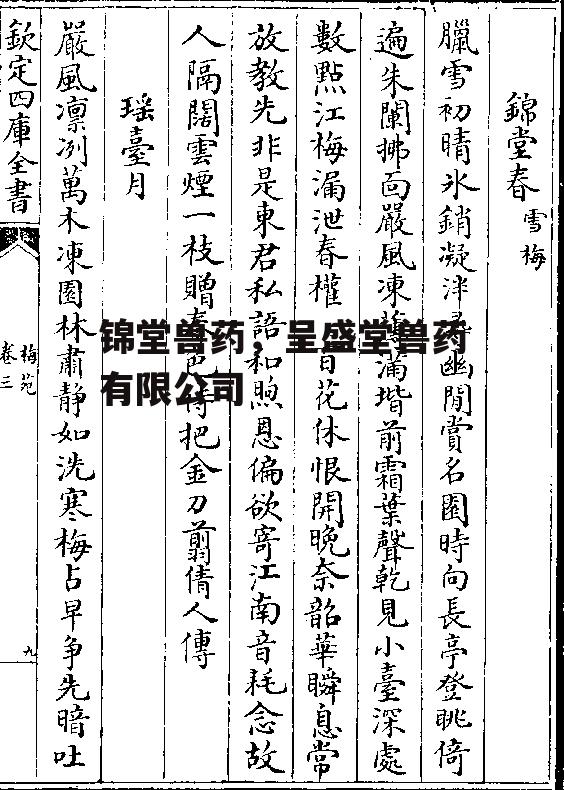 錦堂春雪梅
臘雪初晴氷銷凝泮幽閒賞名園時向長亭登眺倚
遍朱闌拂面嚴風凍滿堦前霜葉聲乾見小臺深處
數點江梅漏泄春權百花休恨開晚奈韶華瞬息常
放教先非是東君私語和煦恩偏欲寄江南音耗念故
人隔闊雲煙一枝贈春色待把金刀剪倩人傳
瑶臺月
嚴風凛冽萬木凍園林肅静如洗寒梅占早争先暗吐
欽定四庫全書
梅苑
卷三
九
锦堂兽药，呈盛堂兽药
有限公司